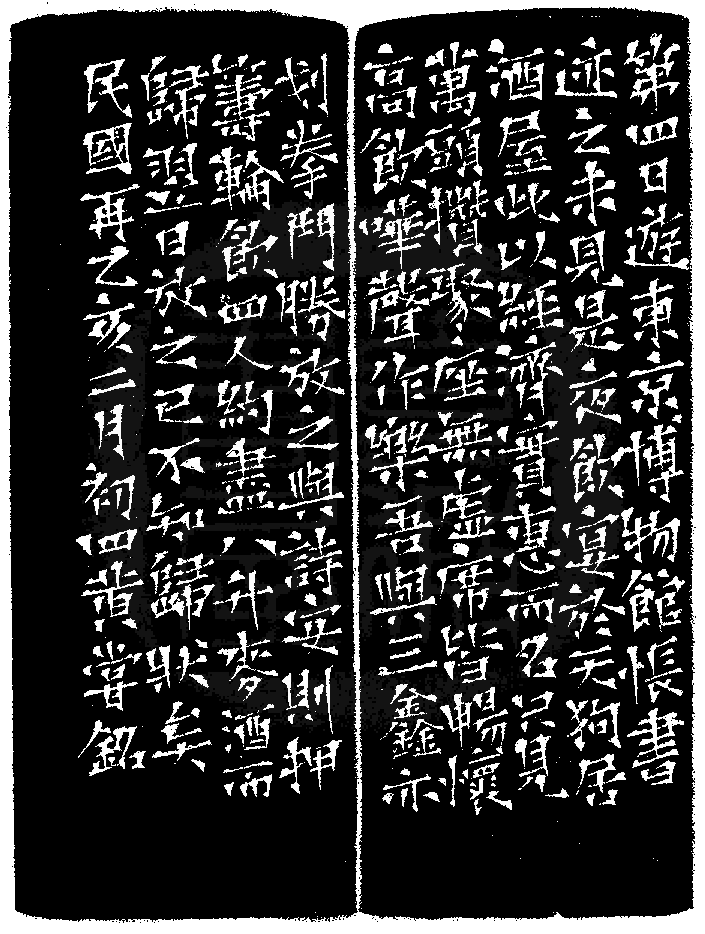 第四日遊東京博物館悵書
迹之未見是夜飲宴於天狗居
酒屋此以經濟實惠而名只見
萬頭攢聚座無虛席皆暢懷
高飲嘩聲作樂吾與三鑫亦
划拳鬥勝放之與詩安則押
籌輪飲四人約盡八升麥酒而
歸翌日放之已不知歸狀矣
民國再乙亥二月初四黄嘗銘